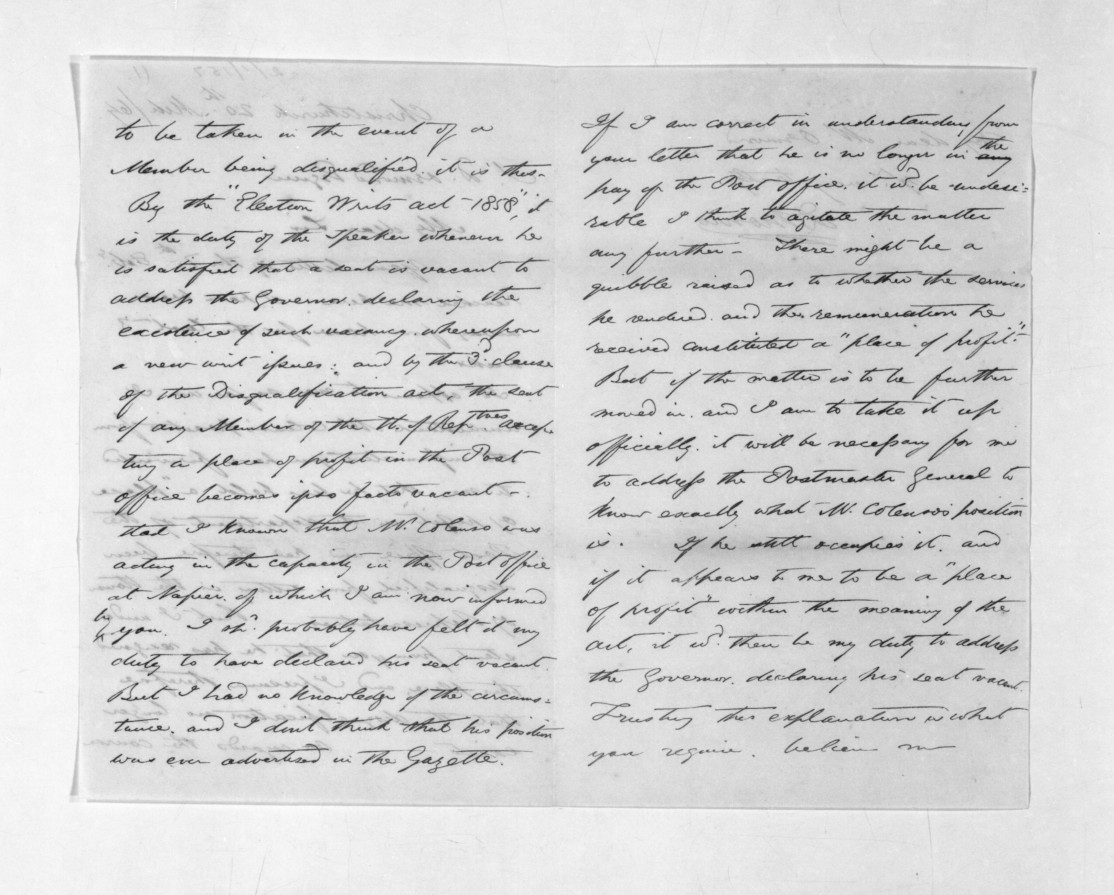 to be taken in the event of a
Member being disqualified, it is this-
By the "Election Writs act - 1858", it
is the duty of the Speaker whenever he
is satisfied that a seat is vacant to
address the Governor, declaring the
existence of such vacancy, whereupon
a new writ issues; and by the 3d clause
of the Disqualification act, "the seat
of any Member of the H. of Reptves accep
ting a place of profit in the Post
office becomes ipso facto vacant -.
Had I known that Mr Colenso was
acting in the capacity in the Post office
at Napier, of which I am now informed
by you. I shd. probably have felt it my
duty to have declared his seat vacant.
But I had no knowledge of the circums=
tance, and I dont think that his position
was ever advertised in the Gazette.
If I am correct in understanding from
your letter that he is no longer in the any
pay of the Post office, it wd be undesi=
rable I think to agitate the matter
any further - There might be a
quibble raised as to whether the services
he rendered, and the remuneration he
received constituted a "place of profit".
But if the matter is to be further
moved in, and I am to take it up
officially, it will be necessary for me
to address the Postmaster General to
know exactly what Mr Colenso's position
is. If he still occupies it, and
if it appears to me to be a "place
of profit" within the meaning of the
act, it wd. then be my duty to address
the Governor, declaring his seat vacant.
Trusting this explanation is what
you require, believe me